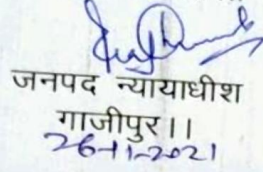 जनपद न्यायाधीश
गाजीपुर।।
26-11-2021